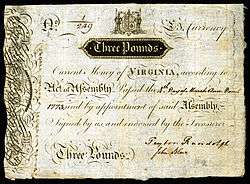 No. 249 £3 Currency
Three Pounds.
Current Money of VIRGINIA, according to
Act of Assembly, Passed the
1775 and by appointment of said Assembly,
Signed by us, and endorsed by the Treasurer
Peyton Randolph
Three Pounds. John Blair